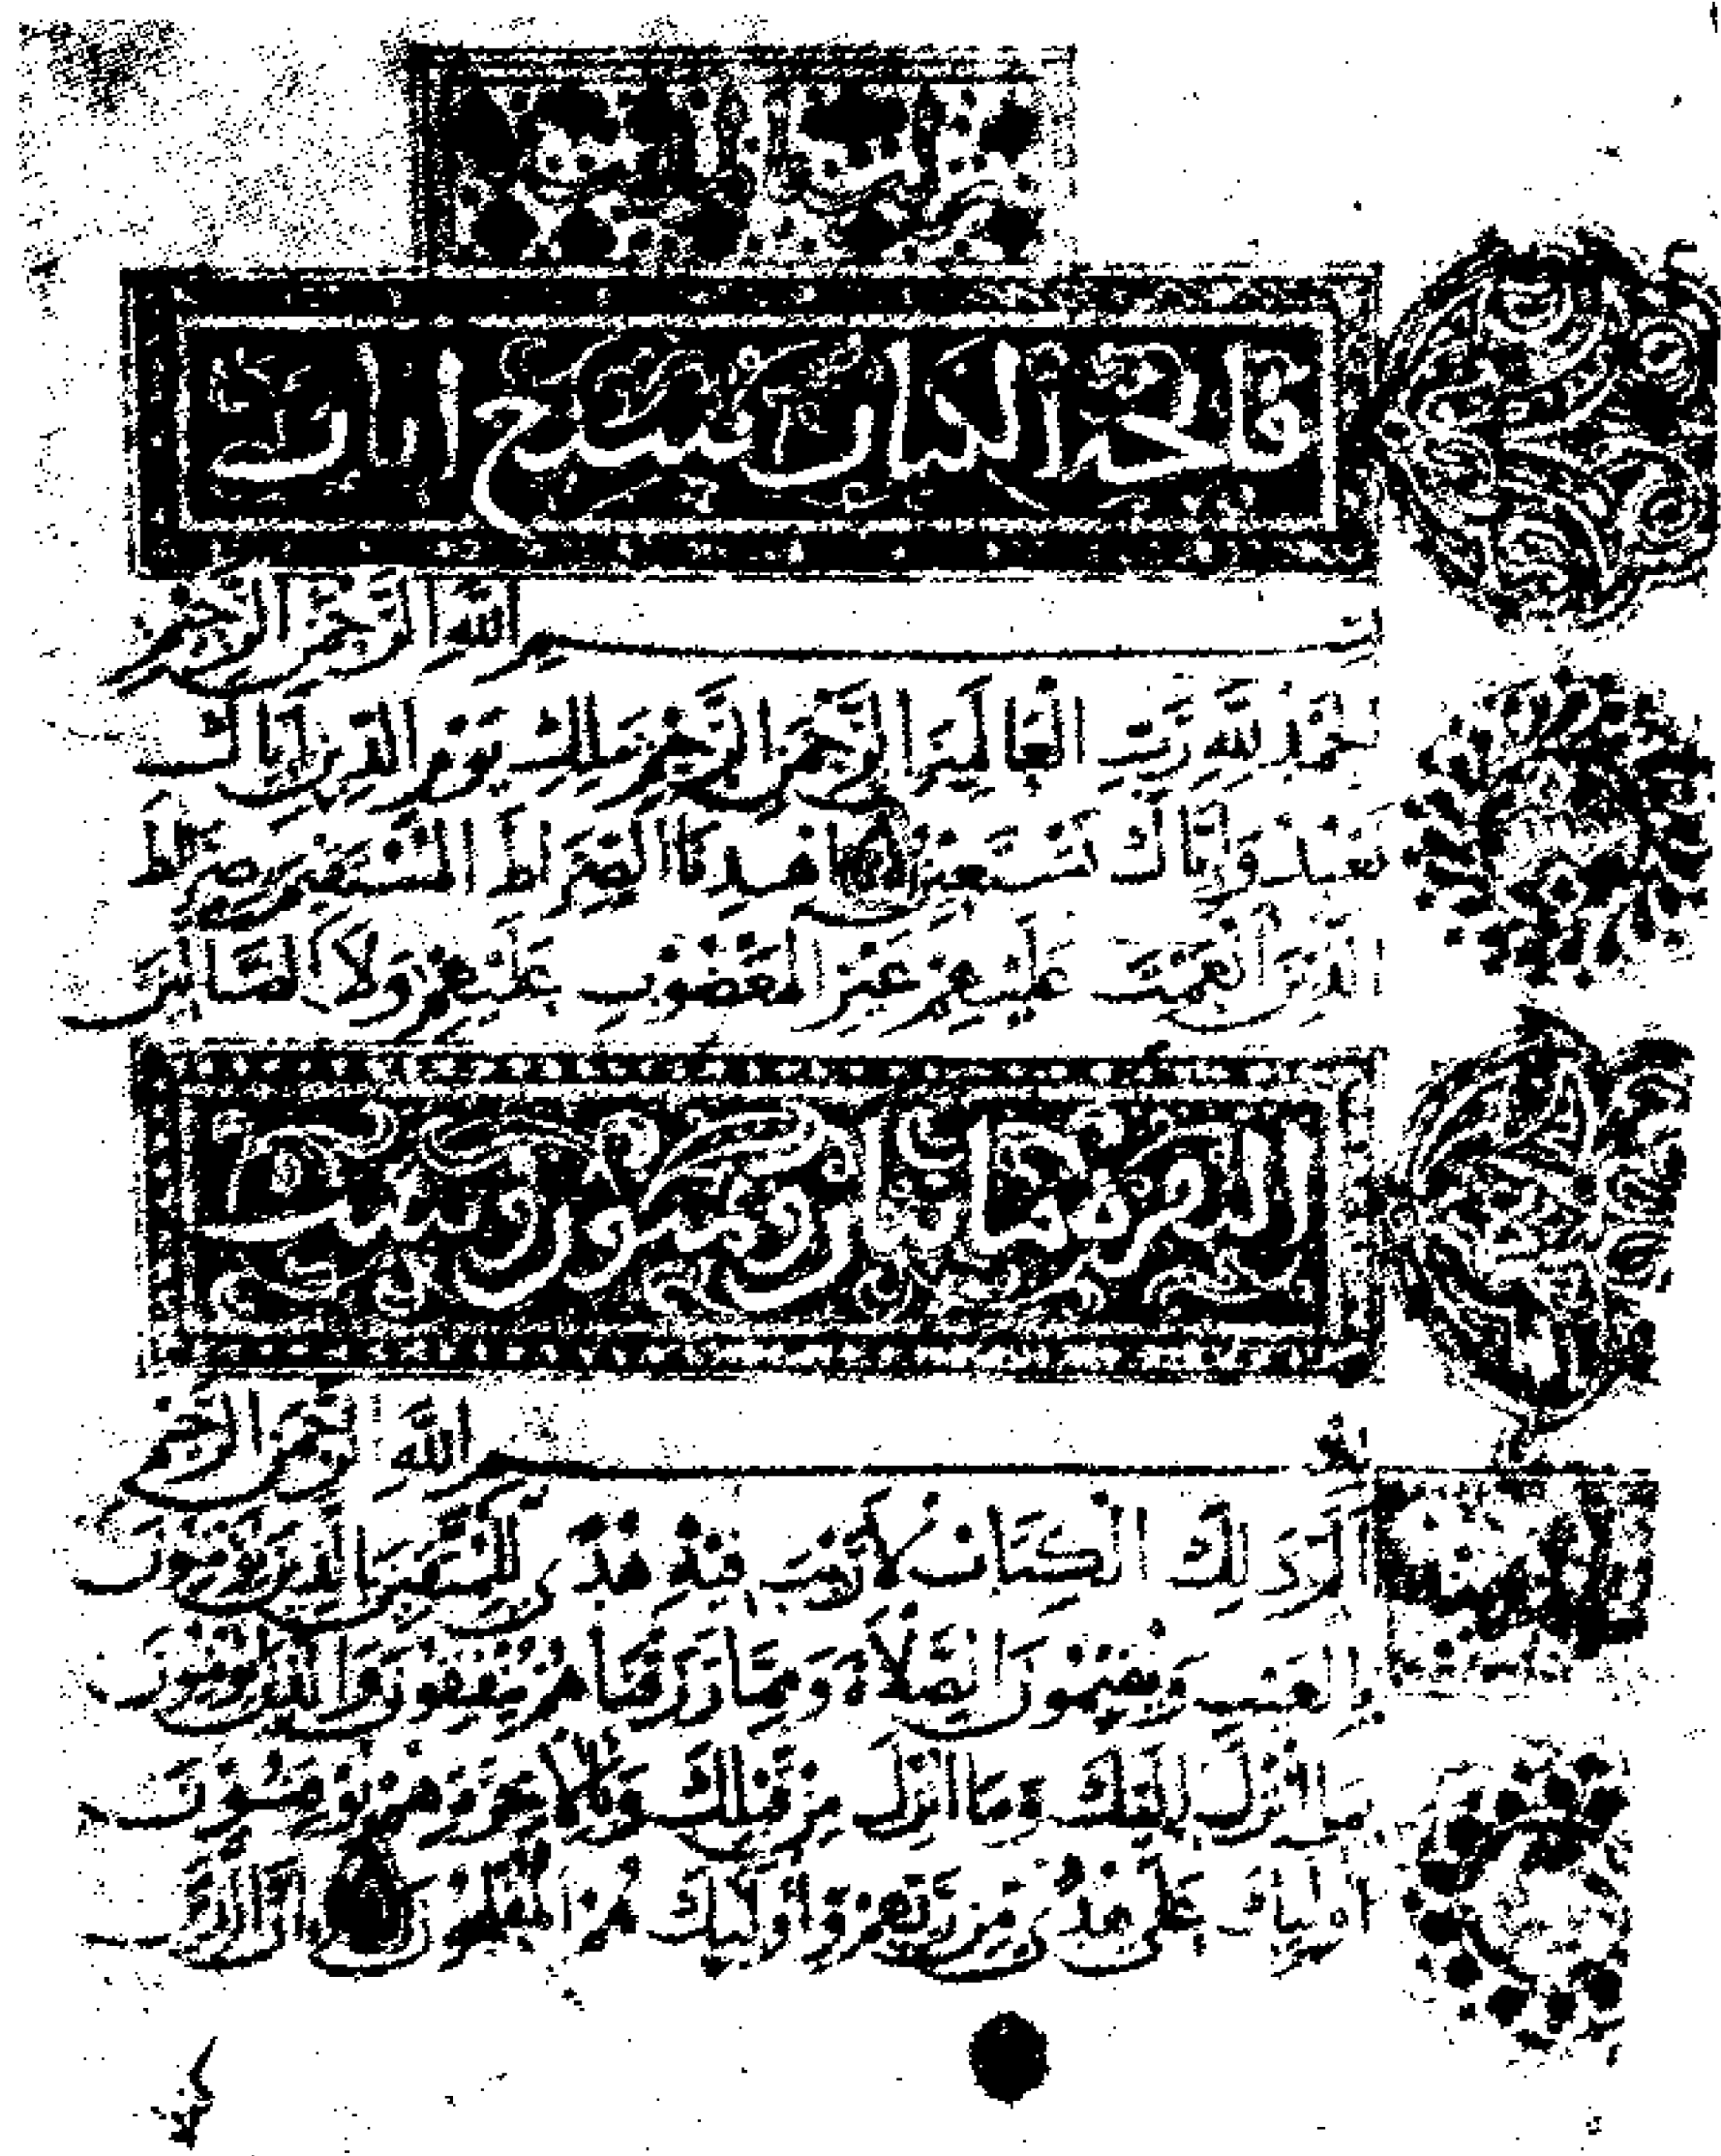 فاتحة الكتاب سبع ايات
بسم الله الرحمن الرحيم
الحمد لله رب العالمين الرحمن الرحيم ملك يوم الدين اياك
نعبد واياك نستعين اهدنا الصراط المستقيم صراط
الذين انعمت عليهم غير المغضوب عليهم ولا الضالين
البقرة مائتان وست
بسم الله الرحمن الرحيم
الم ذلك الكتاب لا ريب فيه هدى للمتقين الذين يؤمنون
بالغيب ويقيمون الصلاة ومما رزقناهم ينفقون والذين يؤمنون
بما انزل اليك وما انزل من قبلك وبالاخرة هم يوقنون
اولئك على هدى من ربهم واولئك هم المفلحون ان الذين